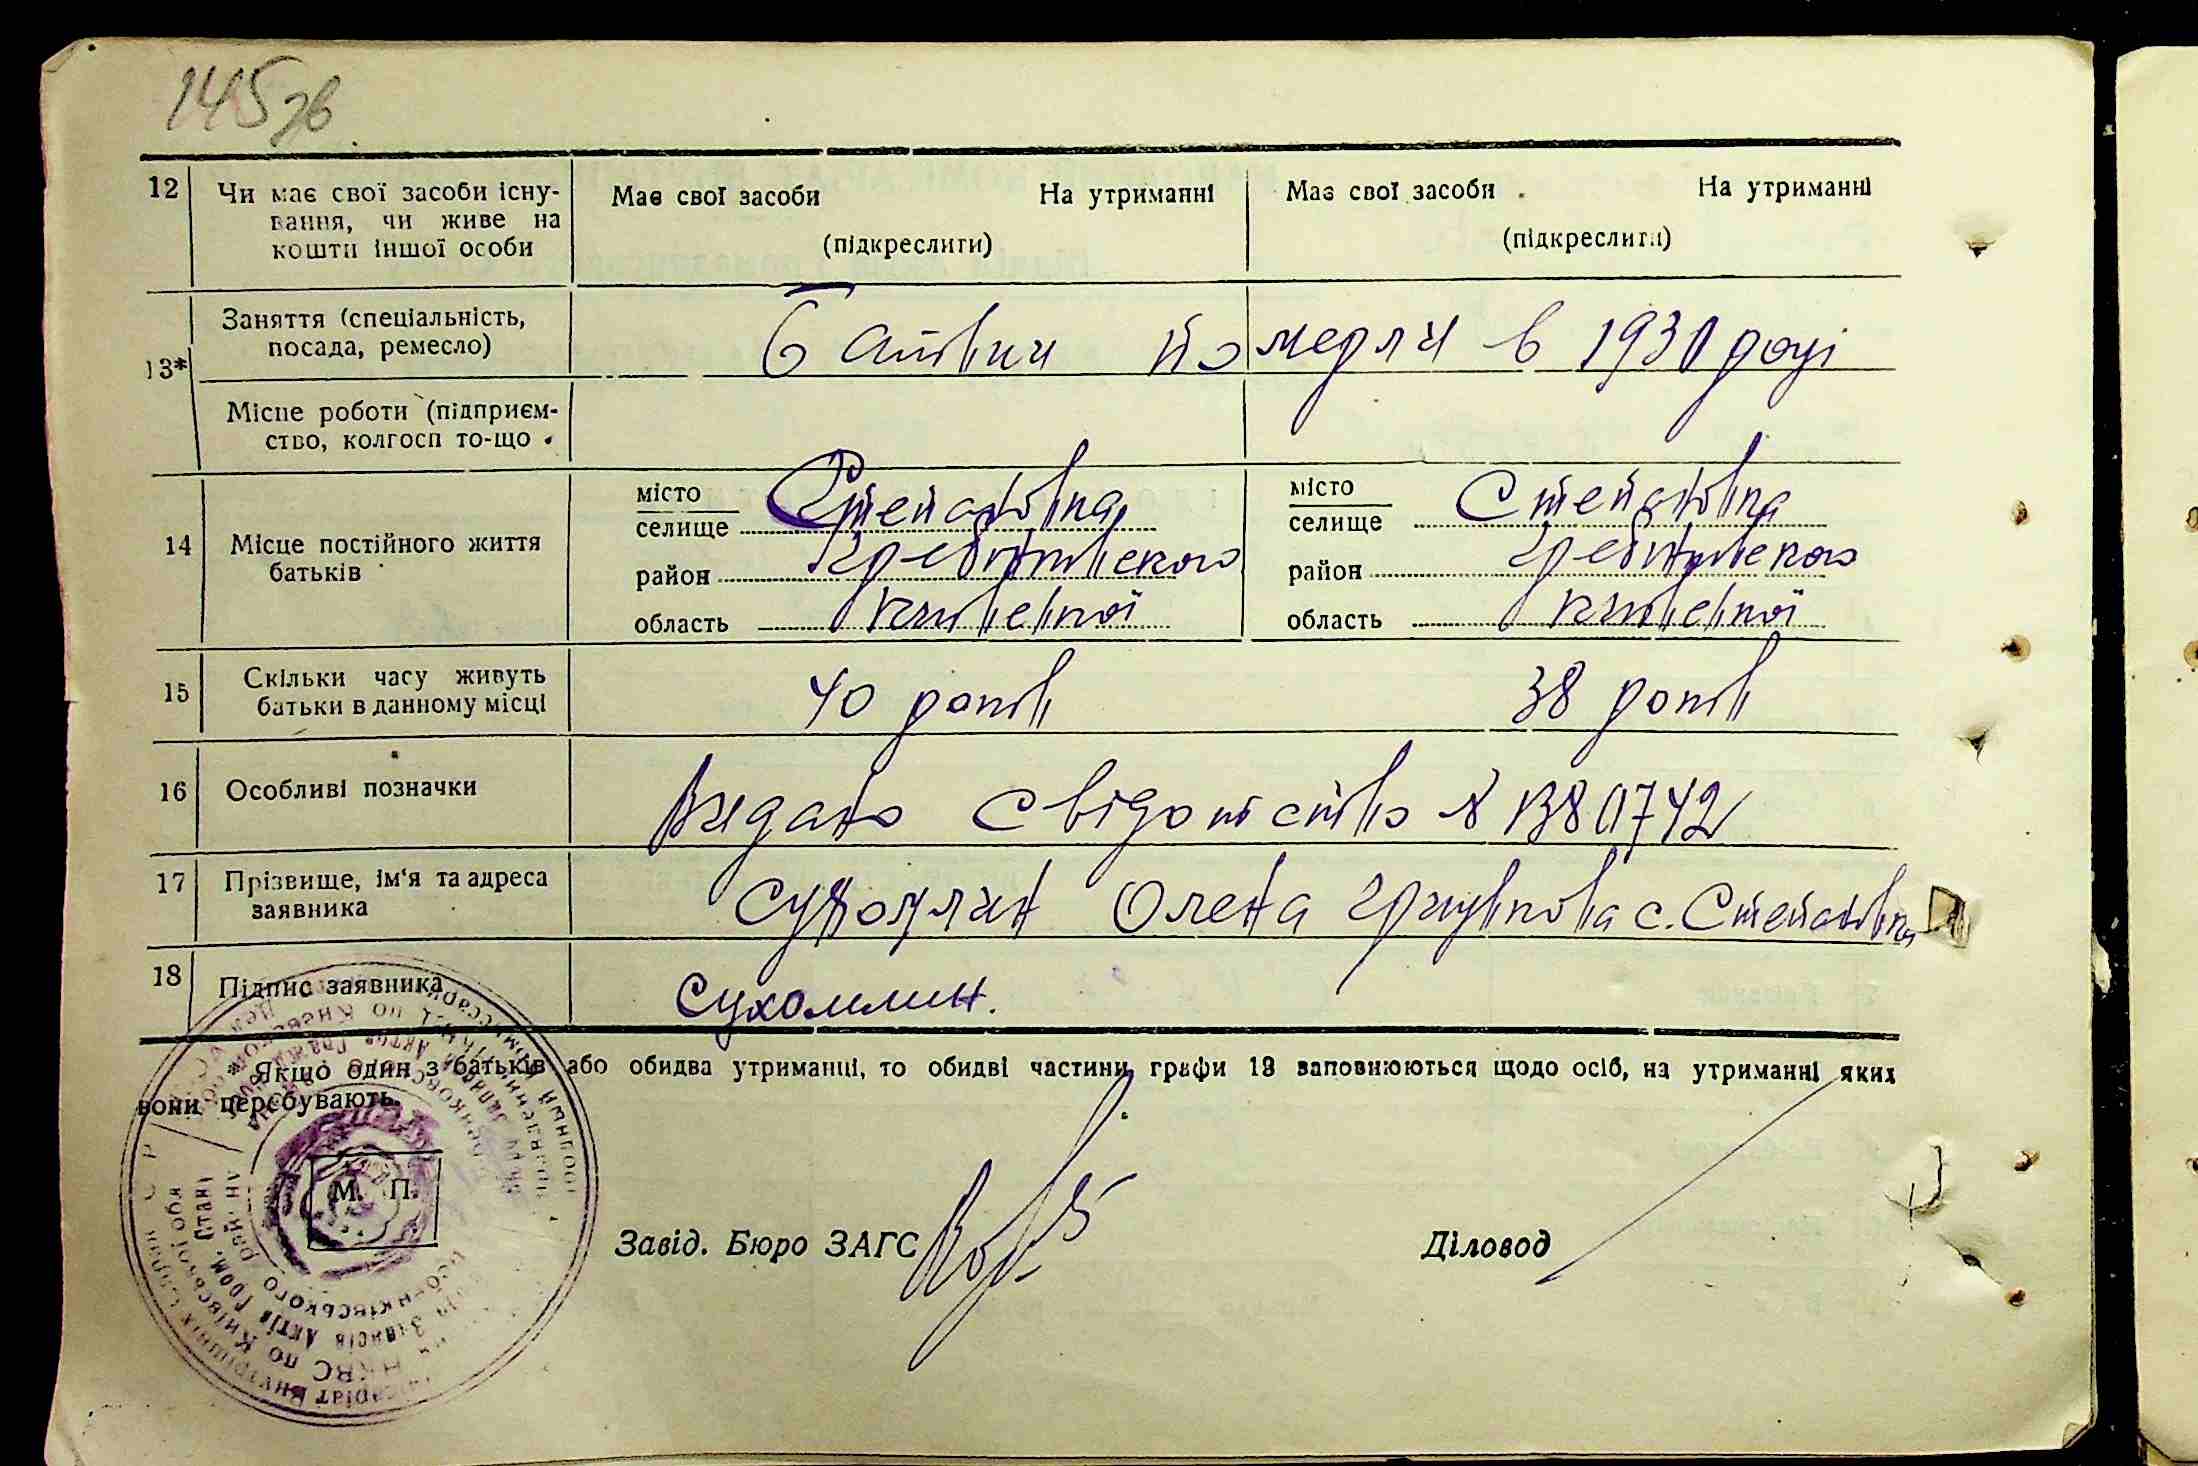 145зв
12 Чи має свої засоби існу-
вання, чи живе на
кошти іншої особи
Має свої засоби На утриманні
(підкреслити)
Має свої засоби На утриманні
(підкреслити)
13*
Заняття (спеціальність,
посада, ремесло)
Батьки померли в 1930 році
Місце роботи (підприєм-
ство, колгосп то-що
14 Місце постійного життя
батьків
місто
селище Степанівка
район Гребінківского
область Київської
місто
селище Степанівка
район Гребінківского
область Київської
15 Скільки часу живуть
батьки в данному місці
40 років 38 років
16 Особливі позначки
Видано свідотство №
17 Прізвище, ім'я та адреса
заявника
Сухомлин Олена с. Степанівка
18 Підпис заявника
Сухомлин.
* Якщо один з батьків або обидва утриманці, то обидві частини графи 13 заповнюються щодо осіб, на утриманні яких
вони перебувають.
М. П.
Завід. Бюро ЗАГС
Діловод